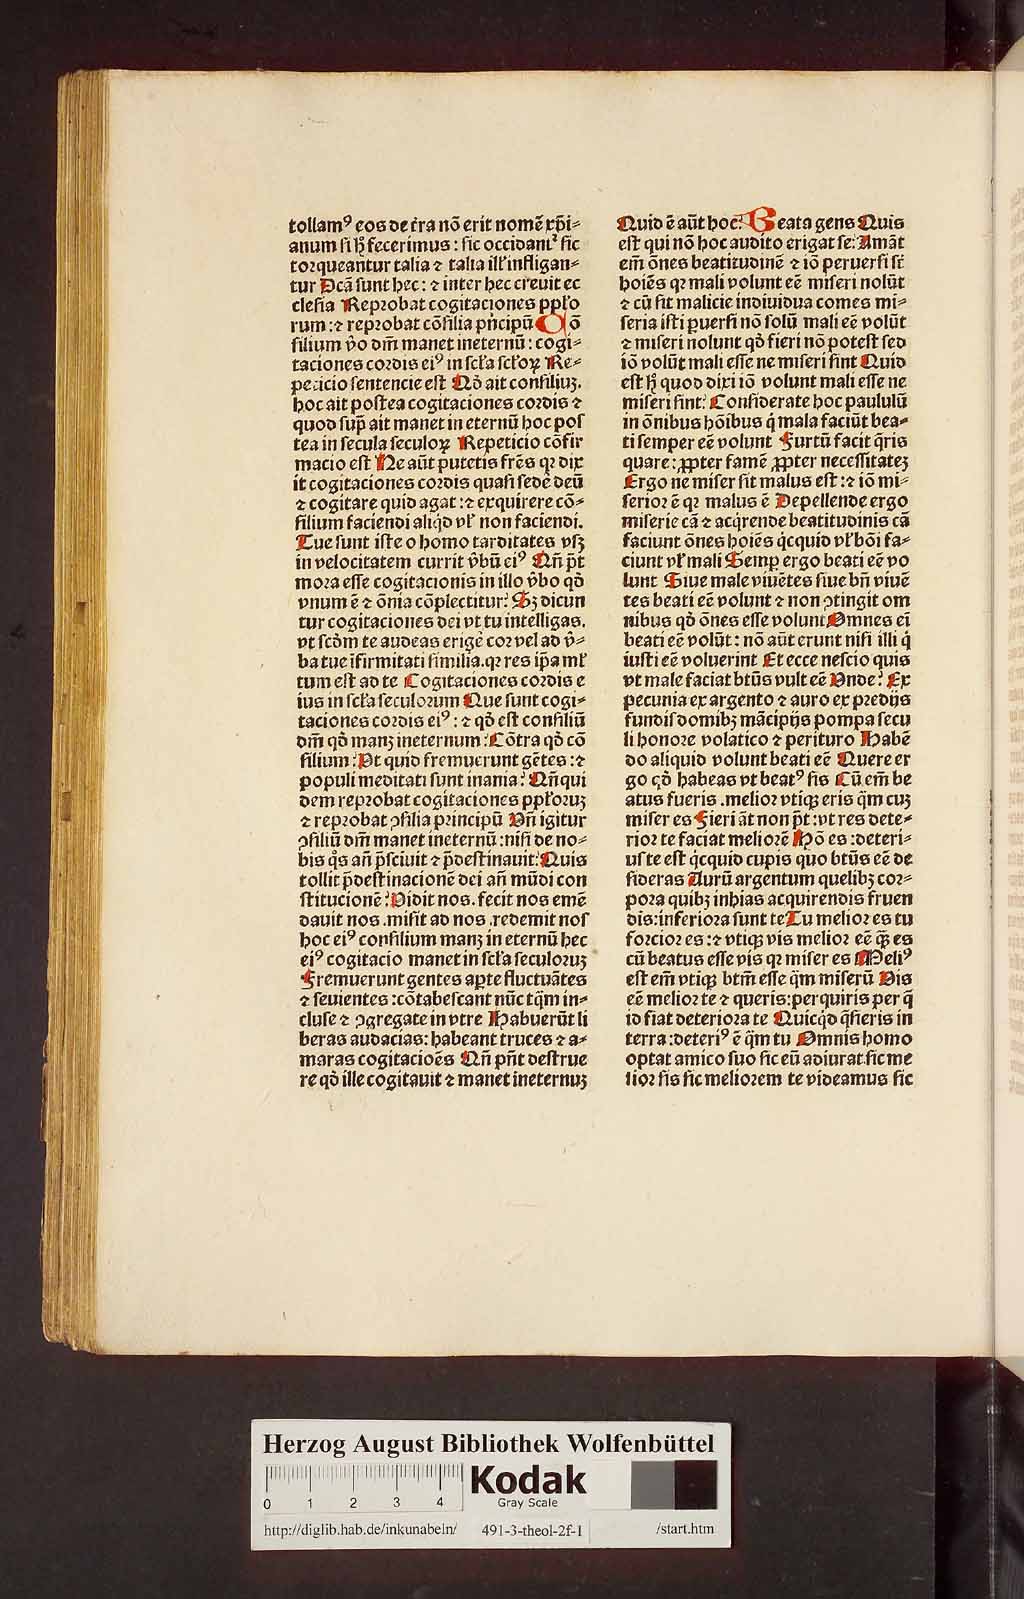 tollamꝰ eos de t̃ra nõ erit nomẽ xp̃i⸗
anum si ħ fecerimus : sic occidant᷑ sic
torqueantur talia ⁊ talia ill̕ infligan⸗
tur Dcã sunt hec : ⁊ inter hec creuit ec
clesia Reprobat cogitaciones ppl̕o
rum : ⁊ reprobat cõsilia pͥncipũ Cõ
silium ṽo dñi manet ineternũ : cogi⸗
taciones cordis eiꝰ in scl̕a scl̕oꝝ Re⸗
peticio sentencie est Qð ait consiliuꝫ.
hoc ait postea cogitaciones cordis ⁊
quod sup̃ ait manet in eternũ hoc pos
tea in secula seculoꝝ Repeticio cõfir
macio est Ne aũt putetis frẽs qꝛ dix
it cogitaciones cordis quasi sedẽ deũ
⁊ cogitare quid agat : ⁊ exquirere cõ⸗
silium faciendi aliqͥd vl̕ non faciendi.
Tue sunt iste o homo tarditates vsqꝫ
in velocitatem currit ṽbũ eiꝰ Qñ p̃t
mora esse cogitacionis in illo ṽbo qð
vnum ẽ ⁊ õnia cõplectitur? Sꝫ dicun
tur cogitaciones dei vt tu intelligas.
vt scðm te audeas erigẽ cor vel ad ṽ⸗
ba tue ĩfirmitati similia. qꝛ res ip̃a ml̕
tum est ad te Cogitaciones cordis e
ius in scl̕a seculorum Que sunt cogi⸗
taciones cordis eiꝰ : ⁊ qð est consiliũ
dñi qð manꝫ ineternum? Cõtra qð cõ
silium? Vt quid fremuerunt gẽtes : ⁊
populi meditati sunt inania? Qñqui
dem reprobat cogitaciones ppl̕oruꝫ
⁊ reprobat ꝯsilia principũ Vñ igitur
ꝯsiliũ dñi manet ineternũ : nisi de no⸗
bis qͦs añ p̃sciuit ⁊ p̃destinauit? Quis
tollit p̃destinacionẽ dei añ mũdi con
stitucionẽ? Vidit nos. fecit nos emẽ
dauit nos . misit ad nos .redemit nos
hoc eiꝰ consilium manꝫ in eternũ hec
eiꝰ cogitacio manet in scl̕a seculoruꝫ
Fremuerunt gentes aꝑte fluctuãtes
⁊ seuientes : cõtabescant nũc tq̃m in⸗
cluse ⁊ ꝯgregate in vtre Habuerũt li
beras audacias: habeant truces ⁊ a⸗
maras cogitacioẽs Qñ pñt destrue
re qð ille cogitauit ⁊ manet ineternuꝫ
Quid ẽ aũt hoc? Beata gens Quis
est qui nõ hoc audito erigat se? Amãt
em̃ õnes beatitudinẽ ⁊ iõ peruersi st̃
hoiẽs qꝛ mali volunt eẽ miseri nolũt
⁊ cũ sit malicie indiuidua comes mi⸗
seria isti ꝑuersi nõ solũ mali eẽ volũt
⁊ miseri nolunt qð fieri nõ potest sed
iõ volũt mali esse ne miseri sint Quid
est ħ quod dixi iõ volunt mali esse ne
miseri sint? Considerate hoc paululũ
in õnibus hõibus qͥ mala faciũt bea⸗
ti semper eẽ volunt Furtũ facit qͥris
quare : ꝓpter famẽ ꝓpter necessitateꝫ
Ergo ne miser sit malus est : ⁊ iõ mi⸗
serior ẽ qꝛ malus ẽ Depellende ergo
miserie cã ⁊ acqͥrende beatitudinis cã
faciunt õnes hoiẽs qͥcquid vl̕ bõi fa⸗
ciunt vl̕ mali Semꝑ ergo beati eẽ vo
lunt Siue male viuẽtes siue bñ viuẽ
tes beati eẽ volunt ⁊ non ꝯtingit om
nibus qð õnes esse volunt Omnes ei
beati eẽ volũt : nõ aũt erunt nisi illi qͥ
iusti eẽ voluerint Et ecce nescio quis
vt male faciat btũs vult eẽ Vnde? Ex
pecunia ex argento ⁊ auro ex predijs
fundis domibꝫ mãcipijs pompa secu
li honore volatico ⁊ perituro Habẽ
do aliquid volunt beati eẽ Quere er
go qð habeas vt beatꝰ sis Cũ em̃ be
atus fueris . melior vtiqꝫ eris q̃m cuꝫ
miser es Fieri ãt non p̃t : vt res dete⸗
rior te faciat meliorẽ Hõ es : deteri⸗
us te est qͥcquid cupis quo btũs eẽ de
sideras Aurũ argentum quelibꝫ cor⸗
pora quibꝫ inhias acquirendis fruen
dis: inferiora sunt te Tu melior es tu
forcior es : ⁊ vtiqꝫ vis melior eẽ qͣꝫ es
cũ beatus esse vis qꝛ miser es Meliꝰ
est em̃ vtiqꝫ btm̃ esse q̃m miserũ Vis
eẽ melior te ⁊ queris: perquiris per q̃
id fiat deteriora te Quicqͥd q̃sieris in
terra : deteriꝰ ẽ q̃m tu Omnis homo
optat amico suo sic eũ adiurat. sic me
lior sis sic meliorem te videamus sic
Herzog August Bibliothek Wolfenbüttel
0 1 2 3 4
Kodak
Gray Scale
http://diglib.hab.de/inkunabeln/ 491-3-theol-2f-1 /start.htm